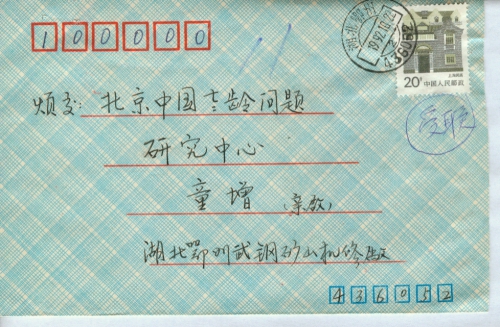 100000
烦交:北京中国老龄问题
研究中心
童增(亲啟)
湖北鄂州武钢矿山机修廠
436032
20分 中国人民邮政
上海民居
湖北鄂州